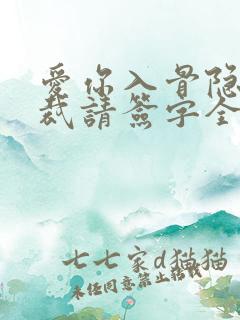 愛你入骨隐
裁請簽字全
七七家d猫猫
未经同意禁止转载